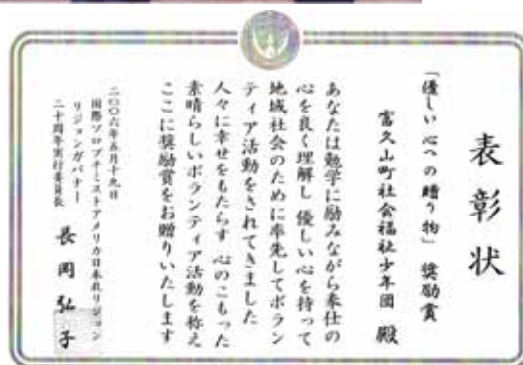 表彰状
「優しい心への贈り物」 奨励賞
富久山町社会福祉少年団 殿
あなたは勉学に励みながら奉仕の
心を良く理解し 優しい心を持って
地域社会のために率先してボラン
ティア活動をされてきました
人々に幸せをもたらす 心のこもった
素晴らしいボランティア活動を称え
ここに奨励賞をお贈りいたします
二〇〇六年五月十九日
国際ソロプチミストアメリカ日本北リジョン
リジョンガバナー
二十周年実行委員長
長岡弘子